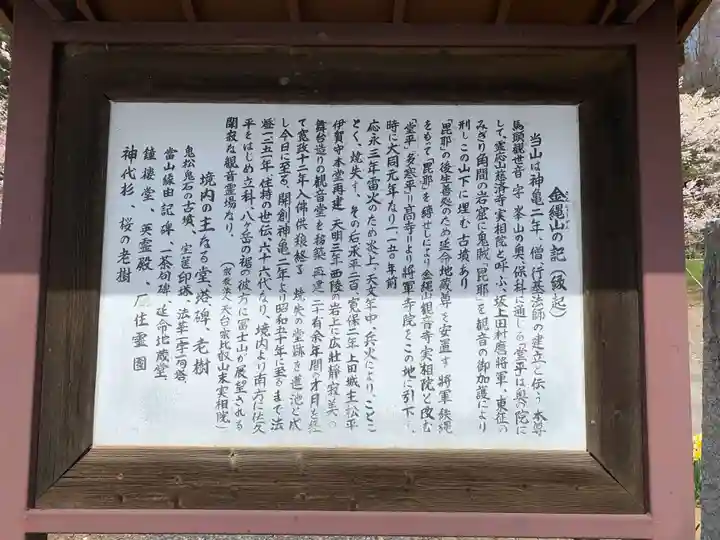 金縄山の記（縁起）
当山は神亀二年、僧（行基法師の建立と伝う 本尊
馬頭観世音 字 峯山の奥、保科に通じる「堂平は奥の院に
して、霊応山慈済寺実相院と呼ぶ、坂上田村麿將軍、東征の
みぎり角間の岩窟に鬼賊「毘耶」を観音の御加護により
刑しこの山下に埋む古墳あり
「毘耶」の後生善処のため延命地蔵尊を安置す 將軍 鉄縄
をもって「毘耶」を縛せしにより 金縄山観音寺 実相院と改む
「堂平」多悲平＝高寺＝より將軍寺院をこの地に引下す、
時に大同元年なり一一五〇年前
応永三年雷火のため炎上、天文年中、兵火により、ことご
とく、焼失す、その后承平二百、寛保二年 上田城主松平
伊賀守本堂再建 天明三年 西陵の岩上に広壮静寂美の
舞台造りの観音堂を搆築 再建二十有余年間の才月を経
て寛政十二年入佛供養終了 焼失の堂跡を蓮池と成
し今日に至る、開創神亀二年より昭和五十年に至るまで法
燈一二五一年、住持の世伝、六十六代なり、境内より南方に佐久
平をはじめ立科、八ヶ岳の裾の彼方に富士山が展望される
閑寂な観音霊場なり、
（宗教法人 天台宗比叡山末 実相院）
境内の主なる堂塔碑、老樹
鬼松鬼石の古墳、宝篋印塔、法華一字一石塔、
當山縁由記碑、一茶句碑、延命地蔵堂、
鐘楼堂、英霊殿、石住霊園
神代杉、桜の老樹